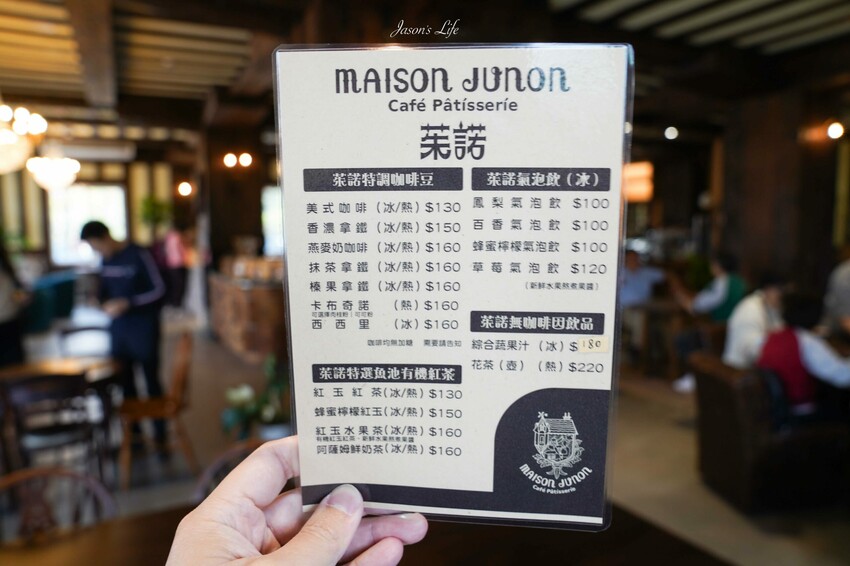 Jason's Life
MAISON JUNON
Café Pâtisserie
茱諾
茱諾特調咖啡豆
美式咖啡 (冰/熱) $130
香濃拿鐵 (冰/熱) $150
燕麥奶咖啡 (冰/熱) $160
抹茶拿鐵 (冰/熱) $160
榛果拿鐵 (冰/熱) $160
卡布奇諾 (熱) $160
可選擇肉桂粉|可可粉
西西里 (冰) $160
咖啡均無加糖 需要請告知
茱諾特選魚池有機紅茶
紅玉紅茶 (冰/熱) $130
蜂蜜檸檬紅玉 (冰/熱) $150
紅玉水果茶 (冰/熱) $160
有機紅玉紅茶、新鮮水果熬煮果醬
阿薩姆鮮奶茶 (冰/熱) $160
茱諾氣泡飲 (冰)
鳳梨氣泡飲 $100
百香氣泡飲 $100
蜂蜜檸檬氣泡飲 $100
草莓氣泡飲 $120
(新鮮水果熬煮果醬)
茱諾無咖啡因飲品
綜合蔬果汁 (冰) $180
花茶 (壺) (熱) $220
MAISON JUNON
Café Pâtisserie